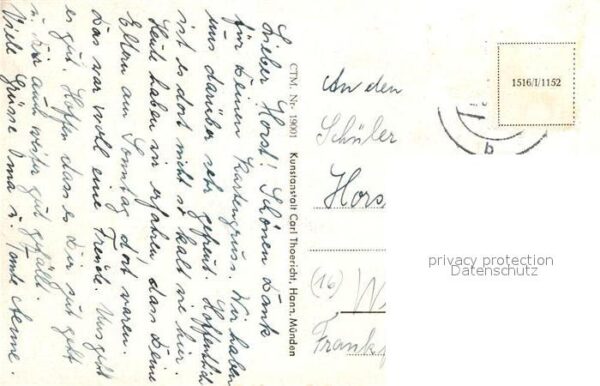 Lieber Horst! Schönen Dank
für Deinen Kartengruss. Wir haben
uns darüber sehr gefreut. Hoffentlich
ist es dort nicht so kalt wie hier.
Heute haben wir erfahren, dass Deine
Eltern am Sonntag dort waren.
Das war wohl eine Freude. Uns geht
es gut. Hoffen dass es Dir gut geht
u. Dir auch weiter gut gefällt.
Viele Grüsse Oma u. Tante Aenne.
CTM. Nr. 19001 Kunstanstalt Carl Thoericht, Hann. Münden
1516/I/1152
An den
Schüler
Hors
(16) W
Frankf
privacy protection
Datenschutz